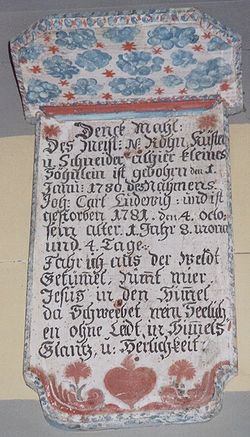 Denck Mahl.
Des Meist: N. Küster
u. Schneider alhier kleines
Söhnlein ist gebohrn den 1.
Janu: 1780. des Nahmens
Joh: Carl Ludewig: und ist
gestorben 1781. den 4. octo:
sein alter. 1. Jahr 8. mona
und 4. Tage.
Fahr ich aus der Weldt
Getümel, nimt mier
Jesus in den Himel
da Schwebet mein Seelich
en ohne Leidt, in Himels
Glantz, u: Herlichkeit: